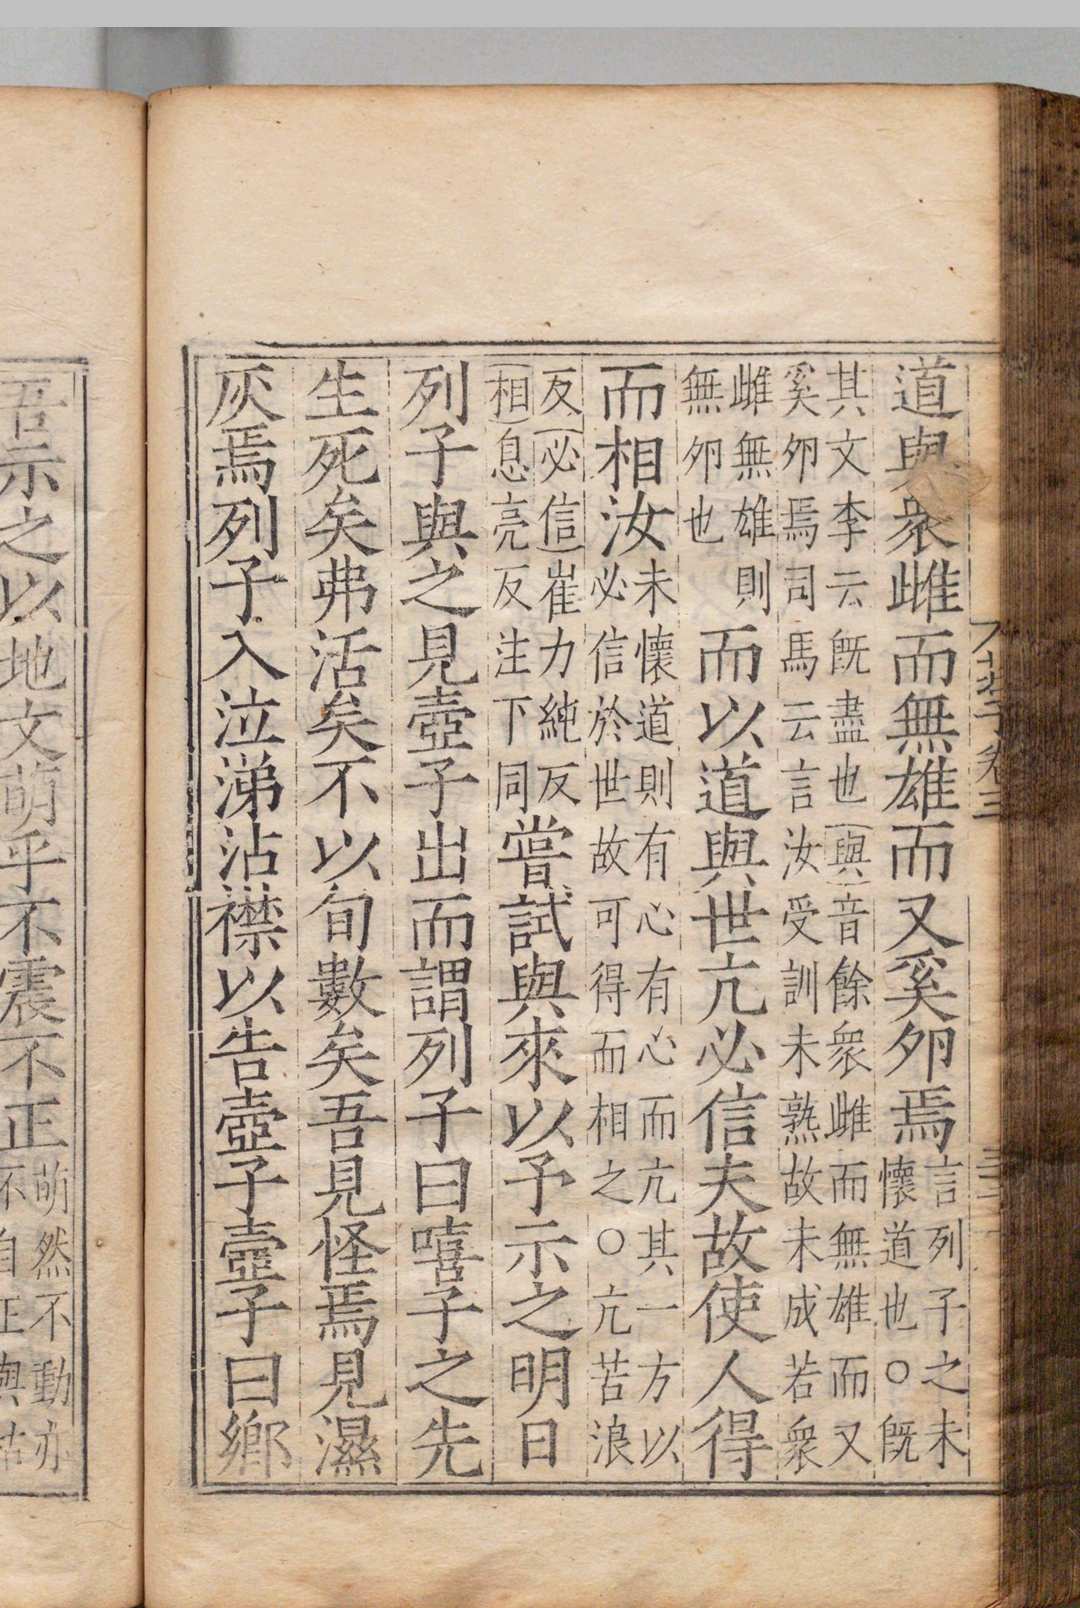 子卷三
道與衆雌而無雄而又奚夘焉言列子之未
懷道也○旣
其文李云旣盡也(與)音餘衆雌而無雄而又
奚夘焉司馬云言汝受訓未熟故未成若衆
雌無雄則
無夘也
而以道與世亢必信夫故使人得
而相汝未懷道則有心有心而亢其一方以
必信於世故可得而相之○亢苦浪
反(必信)崔力純反
(相)息亮反注下同
嘗試與來以予示之明日
列子與之見壺子出而謂列子曰嘻子之先
生死矣弗活矣不以旬數矣吾見怪焉見濕
灰焉列子入泣涕沾襟以告壺子壺子曰鄉
吾示之以地文萌乎不震不正萌然不動亦
不自正與枯